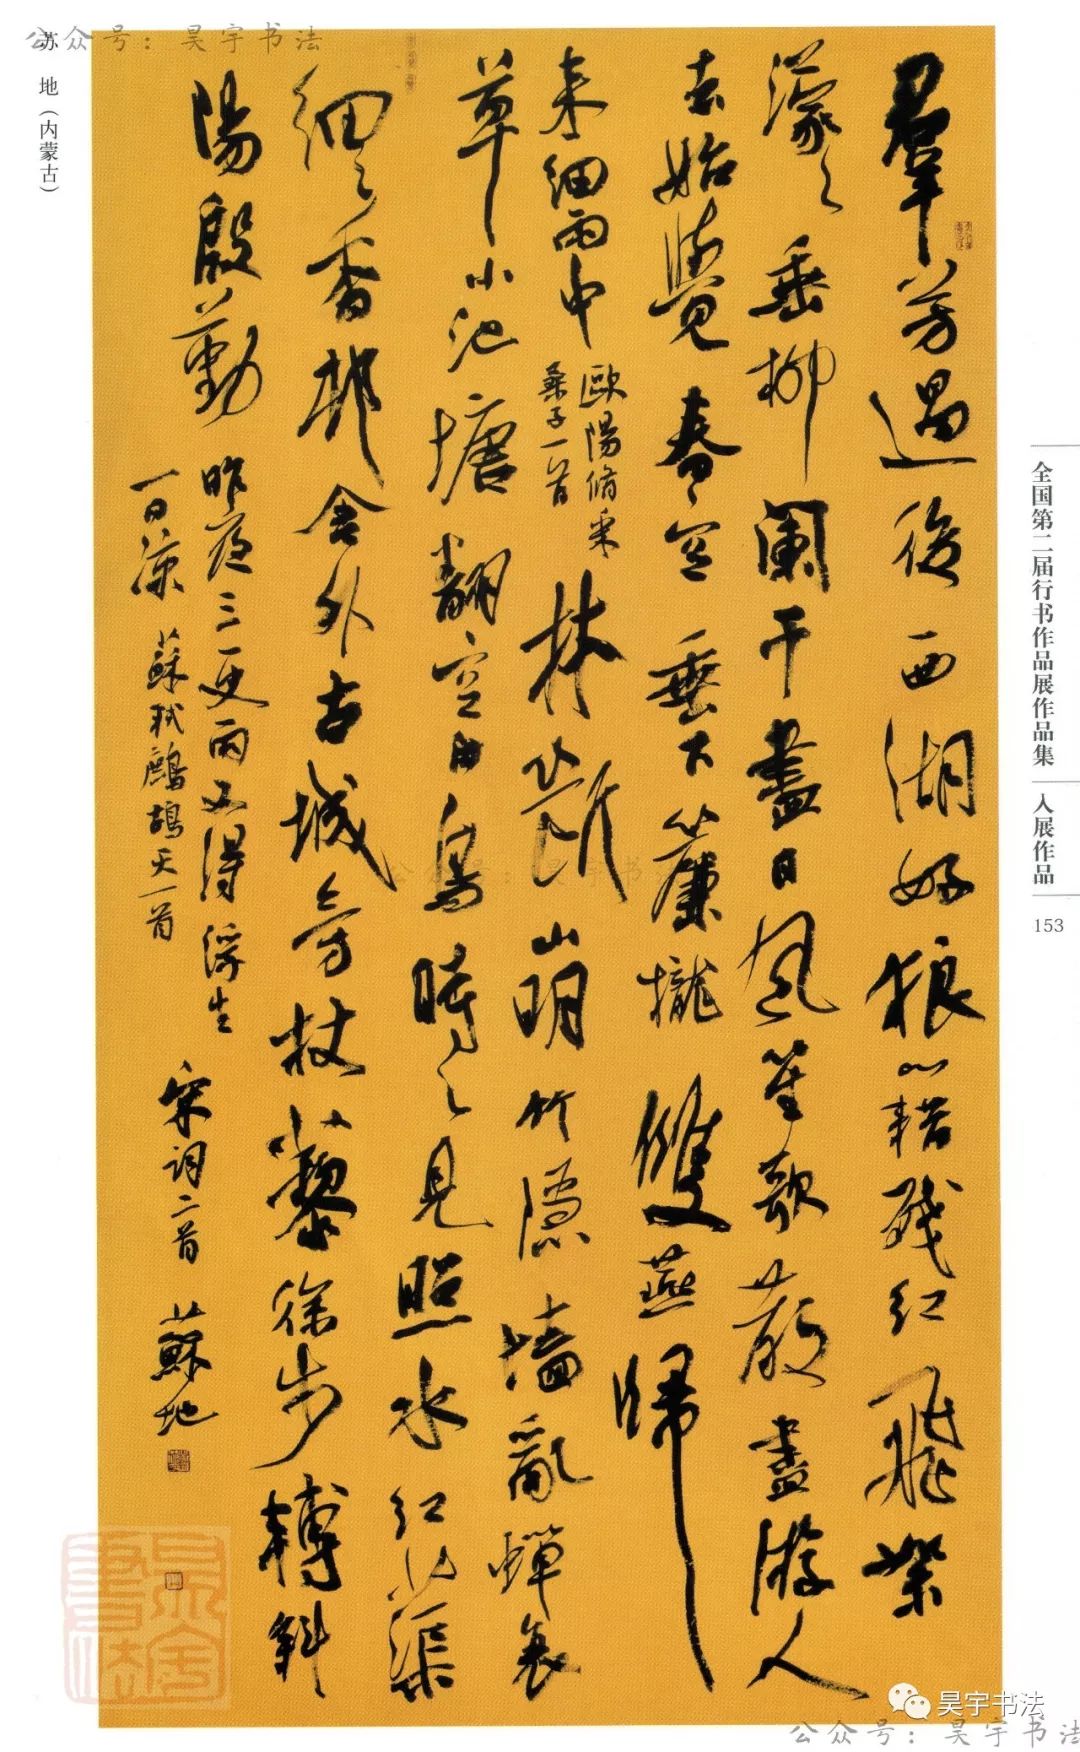 羣芳過後西湖好狼藉殘红飛絮
濛々垂柳闌干盡日風笙歌散盡游人
去始覺春空垂下簾櫳雙燕歸
来細雨中
歐陽脩采
桑子一首
林斷山明竹隱墙亂蟬衰
草小池塘翻空白鳥時々見照水红蕖
細々香邨舍外古城旁杖藜徐步轉斜
陽殷勤
昨夜三更雨又得浮生
一日涼 蘇軾鷓鴣天一首
宋詞二首 蘇地
苏 地（内蒙古）
全国第二届行书作品展作品集
入展作品
153
公众号：昊宇书法
公众号：昊宇书法
昊宇书法
公众号：昊宇书法